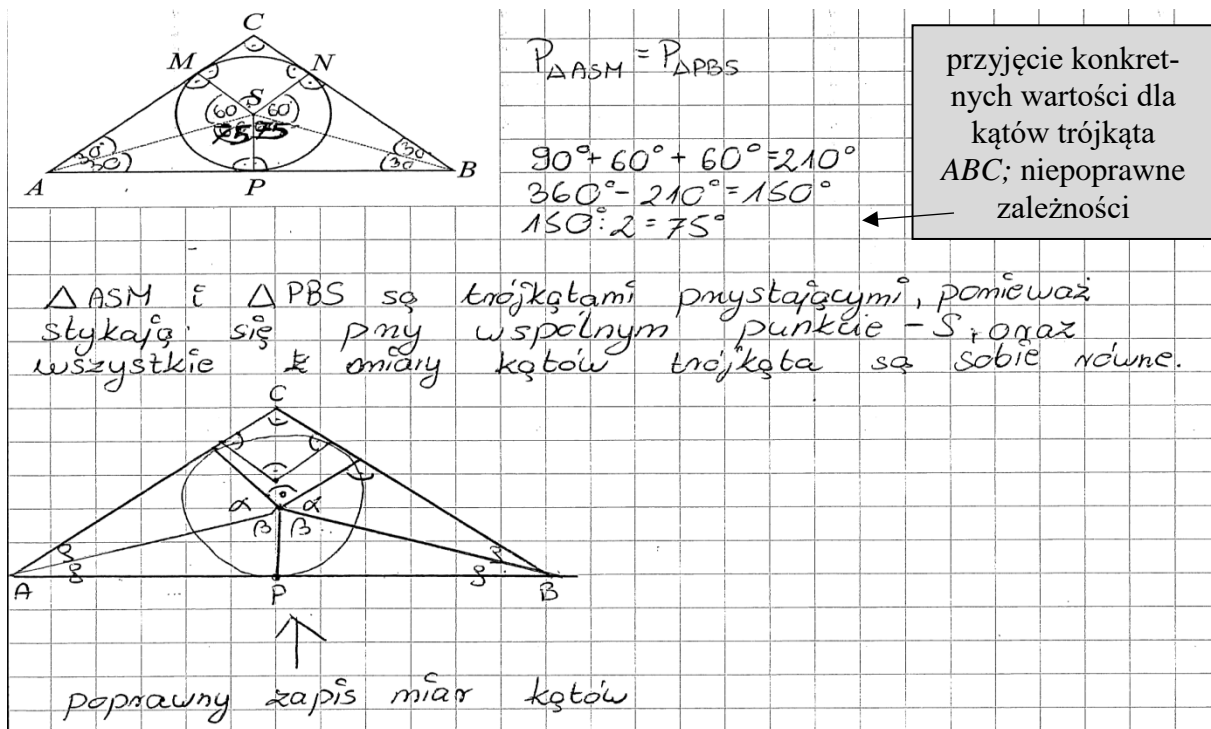 C
M N
S
60° 60°
75 75
30° 30°
30° 30°
A P B
P△ASM = P△PBS
90° + 60° + 60° = 210°
360° - 210° = 150°
150° : 2 = 75°
przyjęcie konkret-
nych wartości dla
kątów trójkąta
ABC; niepoprawne
zależności
△ASM i △PBS są trójkątami przystającymi, ponieważ
stykają się przy wspólnym punkcie - S, oraz
wszystkie miary kątów trójkąta są sobie równe.
C
α α
β β
A P B
poprawny zapis miar kątów